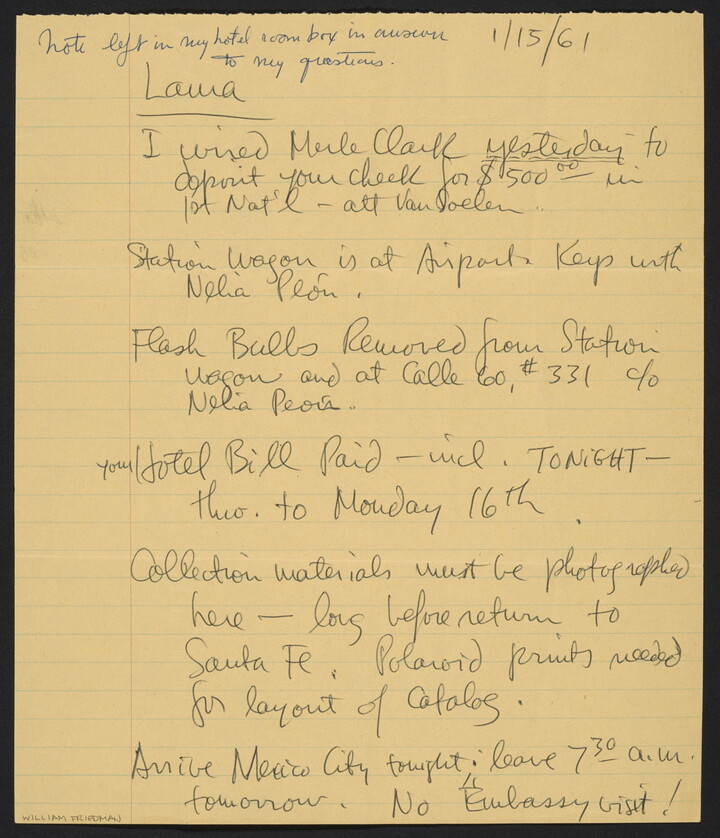 Note left in my hotel room box in answer
to my questions.
1/15/61
Laura
I wired Merle Clark yesterday to
deposit your check for $500.00 in
1st Nat'l – att Van Soelen.
Station Wagon is at Airport. Keys with
Nelia Peón.
Flash Bulbs Removed from Station
wagon and at Calle 60, # 331 c/o
Nelia Peón.
your Hotel Bill Paid – incl. TONIGHT –
thro. to Monday 16th.
Collection materials must be photographed
here – long before return to
Santa Fe. Polaroid prints needed
for layout of Catalog.
Arrive Mexico City tonight; leave 7 30 a.m.
tomorrow. No Embassy visit!
WILLIAM FRIEDMAN